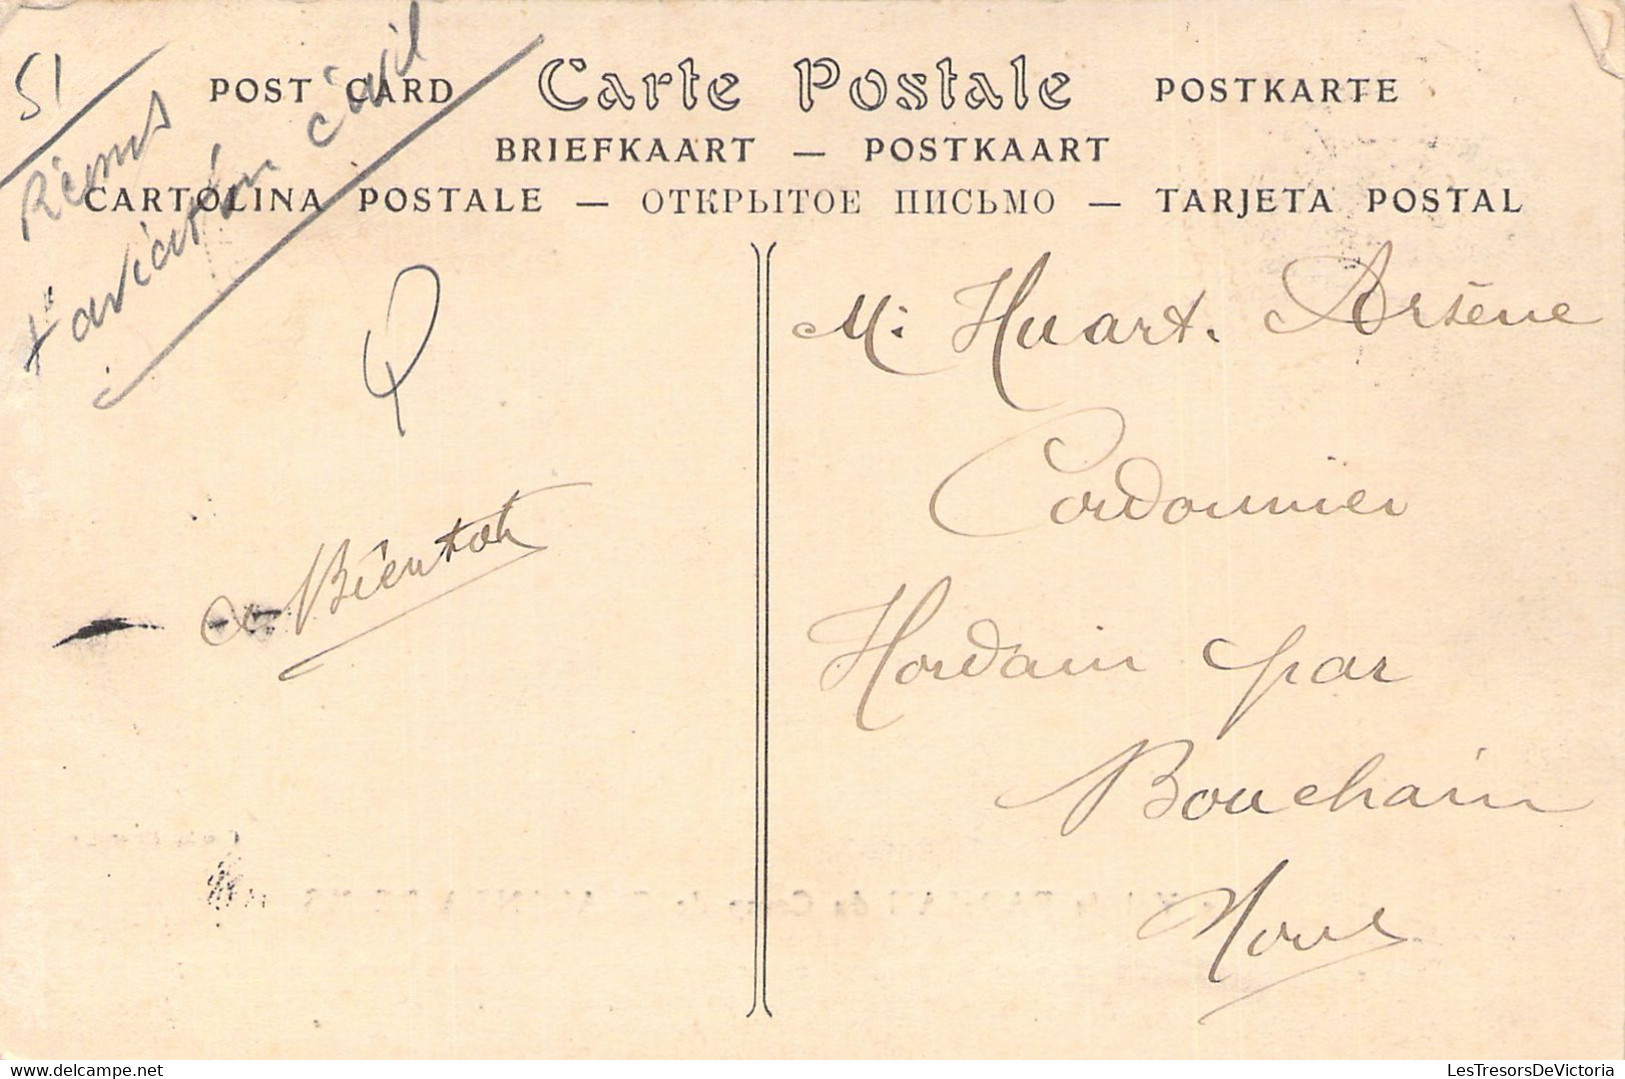 51
Reims
+ aviation civil
POST CARD Carte Postale POSTKARTE
BRIEFKAART — POSTKAART
CARTOLINA POSTALE — ОТКРЫТОЕ ПИСЬМО — TARJETA POSTAL
M: Huart. Arsène
Cordonnier
Hordain par
Bouchain
Nord
a Bientot
LesTresorsDeVictoria